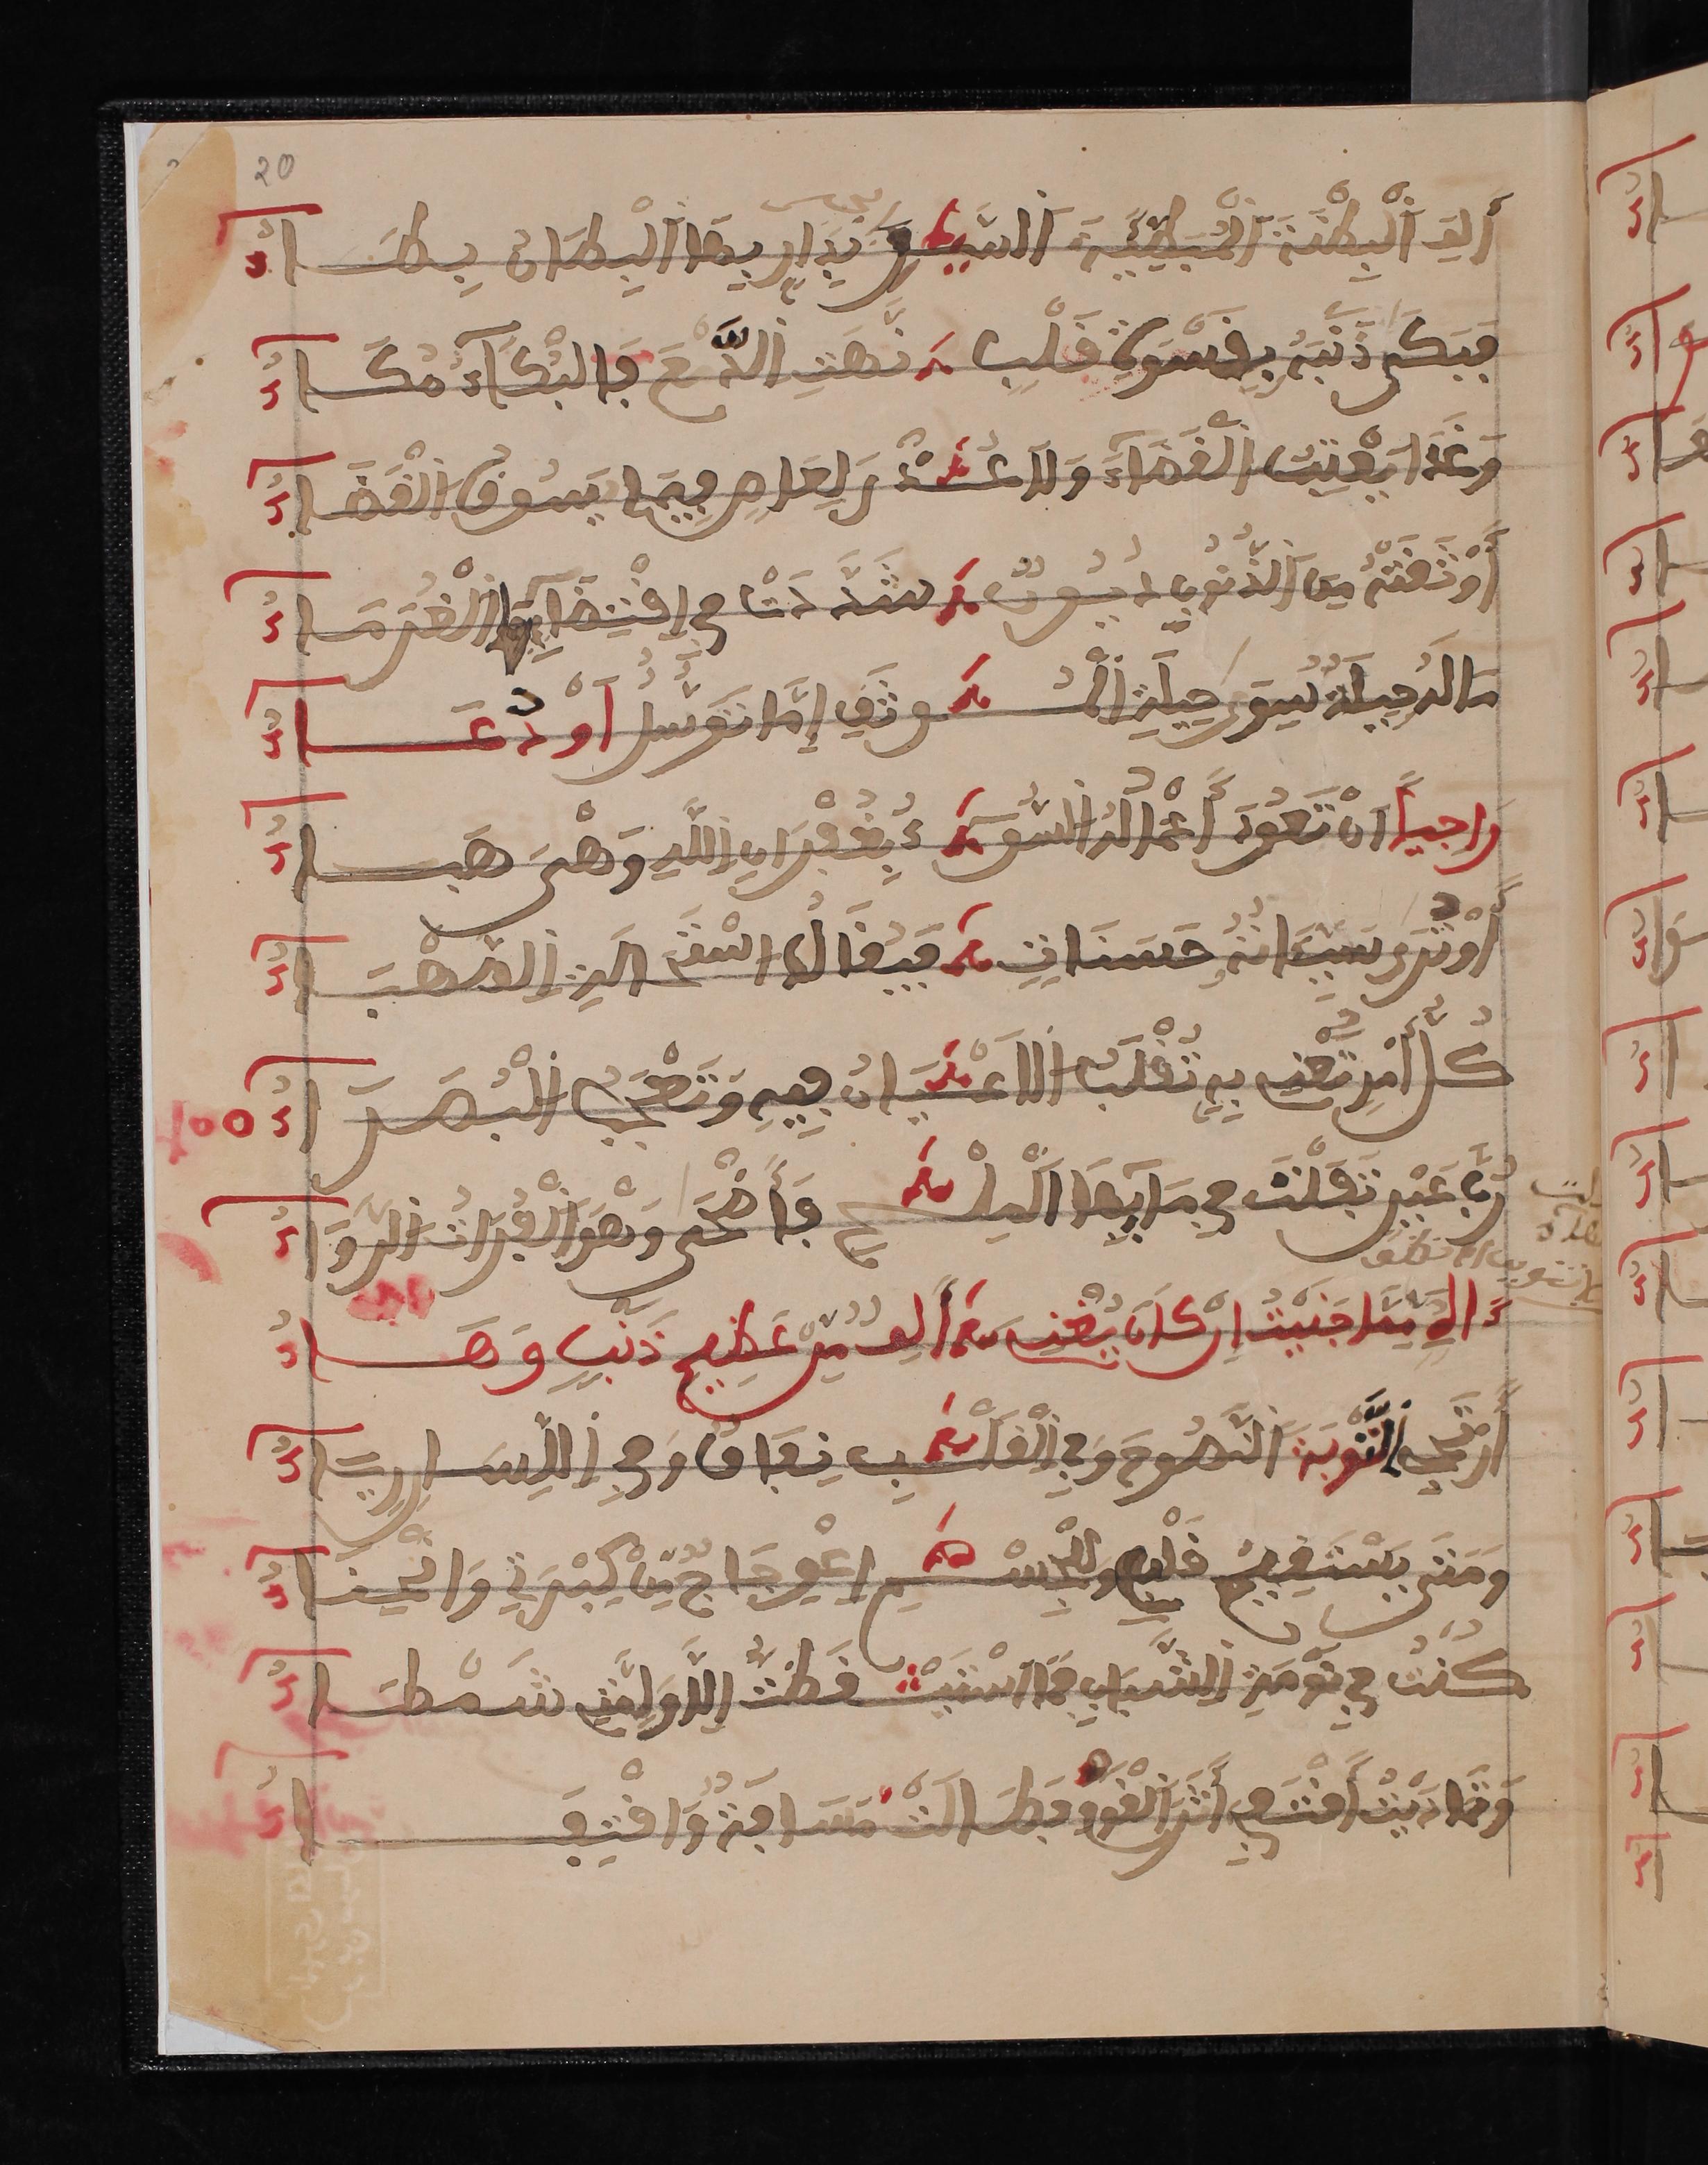 20
أَلِفَ الْبِطْنَةَ الْمُبَطِّئَةَ السَّيْرِ بِدَارٍ بِهَا الْبِطَانُ بِطَاءُ
فَبَكَى ذَنْبَهُ بِقَسْوَةِ قَلْبٍ نَهَتِ الدَّمْعَ فَالْبُكَاءُ مُكَاءُ
وَغَدَا يَعْتِبُ الْقَضَاءَ وَلَا عُذْرَ لِعَاصٍ فِيمَا يَسُوقُ الْقَضَاءُ
أَوْثَقَتْهُ مِنَ الذُّنُوبِ دُيُونٌ شَدَّدَتْ فِي اقْتِضَائِهَا الْغُرَمَاءُ
مَا لَهُ حِيلَةٌ سِوَى حِيلَةِ الْمُوثَقِ إِمَّا تَوَسُّلٌ أَوْ دُعَاءُ
رَاجِياً أَنْ تَعُودَ أَعْمَالُهُ السُّوءُ بِغُفْرَانِ اللَّهِ وَهْيَ هَبَاءُ
أَوْ تُرَى سَيِّئَاتُهُ حَسَنَاتٍ فَيُقَالُ اسْتَحَالَتِ الصَّهْبَاءُ
كُلُّ أَمْرٍ تُعْنَى بِهِ تُقْلَبُ الْأَعْيَانُ فِيهِ وَتَعْجَبُ الْبُصَرَاءُ
رُبَّ عَيْنٍ تَفَلْتَ فِي مَائِهَا الْمِلْحِ فَأَضْحَى وَهْوَ الْفُرَاتُ الرَّوَاءُ
ءَاهِ مِمَّا جَنَيْتُ إِنْ كَانَ يُغْنِي أَلِفٌ مِنْ عَظِيمِ ذَنْبٍ وَهَاءُ
أَرْتَجِي التَّوْبَةَ النَّصُوحَ وَفِي الْقَلْبِ نِفَاقٌ وَفِي اللِّسَانِ رِيَاءُ
وَمَتَى يَسْتَقِيمُ قَلْبِي وَلِلْجِسْمِ اعْوِجَاجٌ مِنْ كَبْرَتِي وَانْحِنَاءُ
كُنْتُ فِي نَوْمَةِ الشَّبَابِ فَمَا اسْتَيْقَظْتُ إِلَّا وَلِمَّتِي شَمْطَاءُ
وَتَمَادَيْتُ أَقْتَفِي أَثَرَ الْقَوْمِ فَطَالَتْ مَسَافَةٌ وَاقْتِفَاءُ